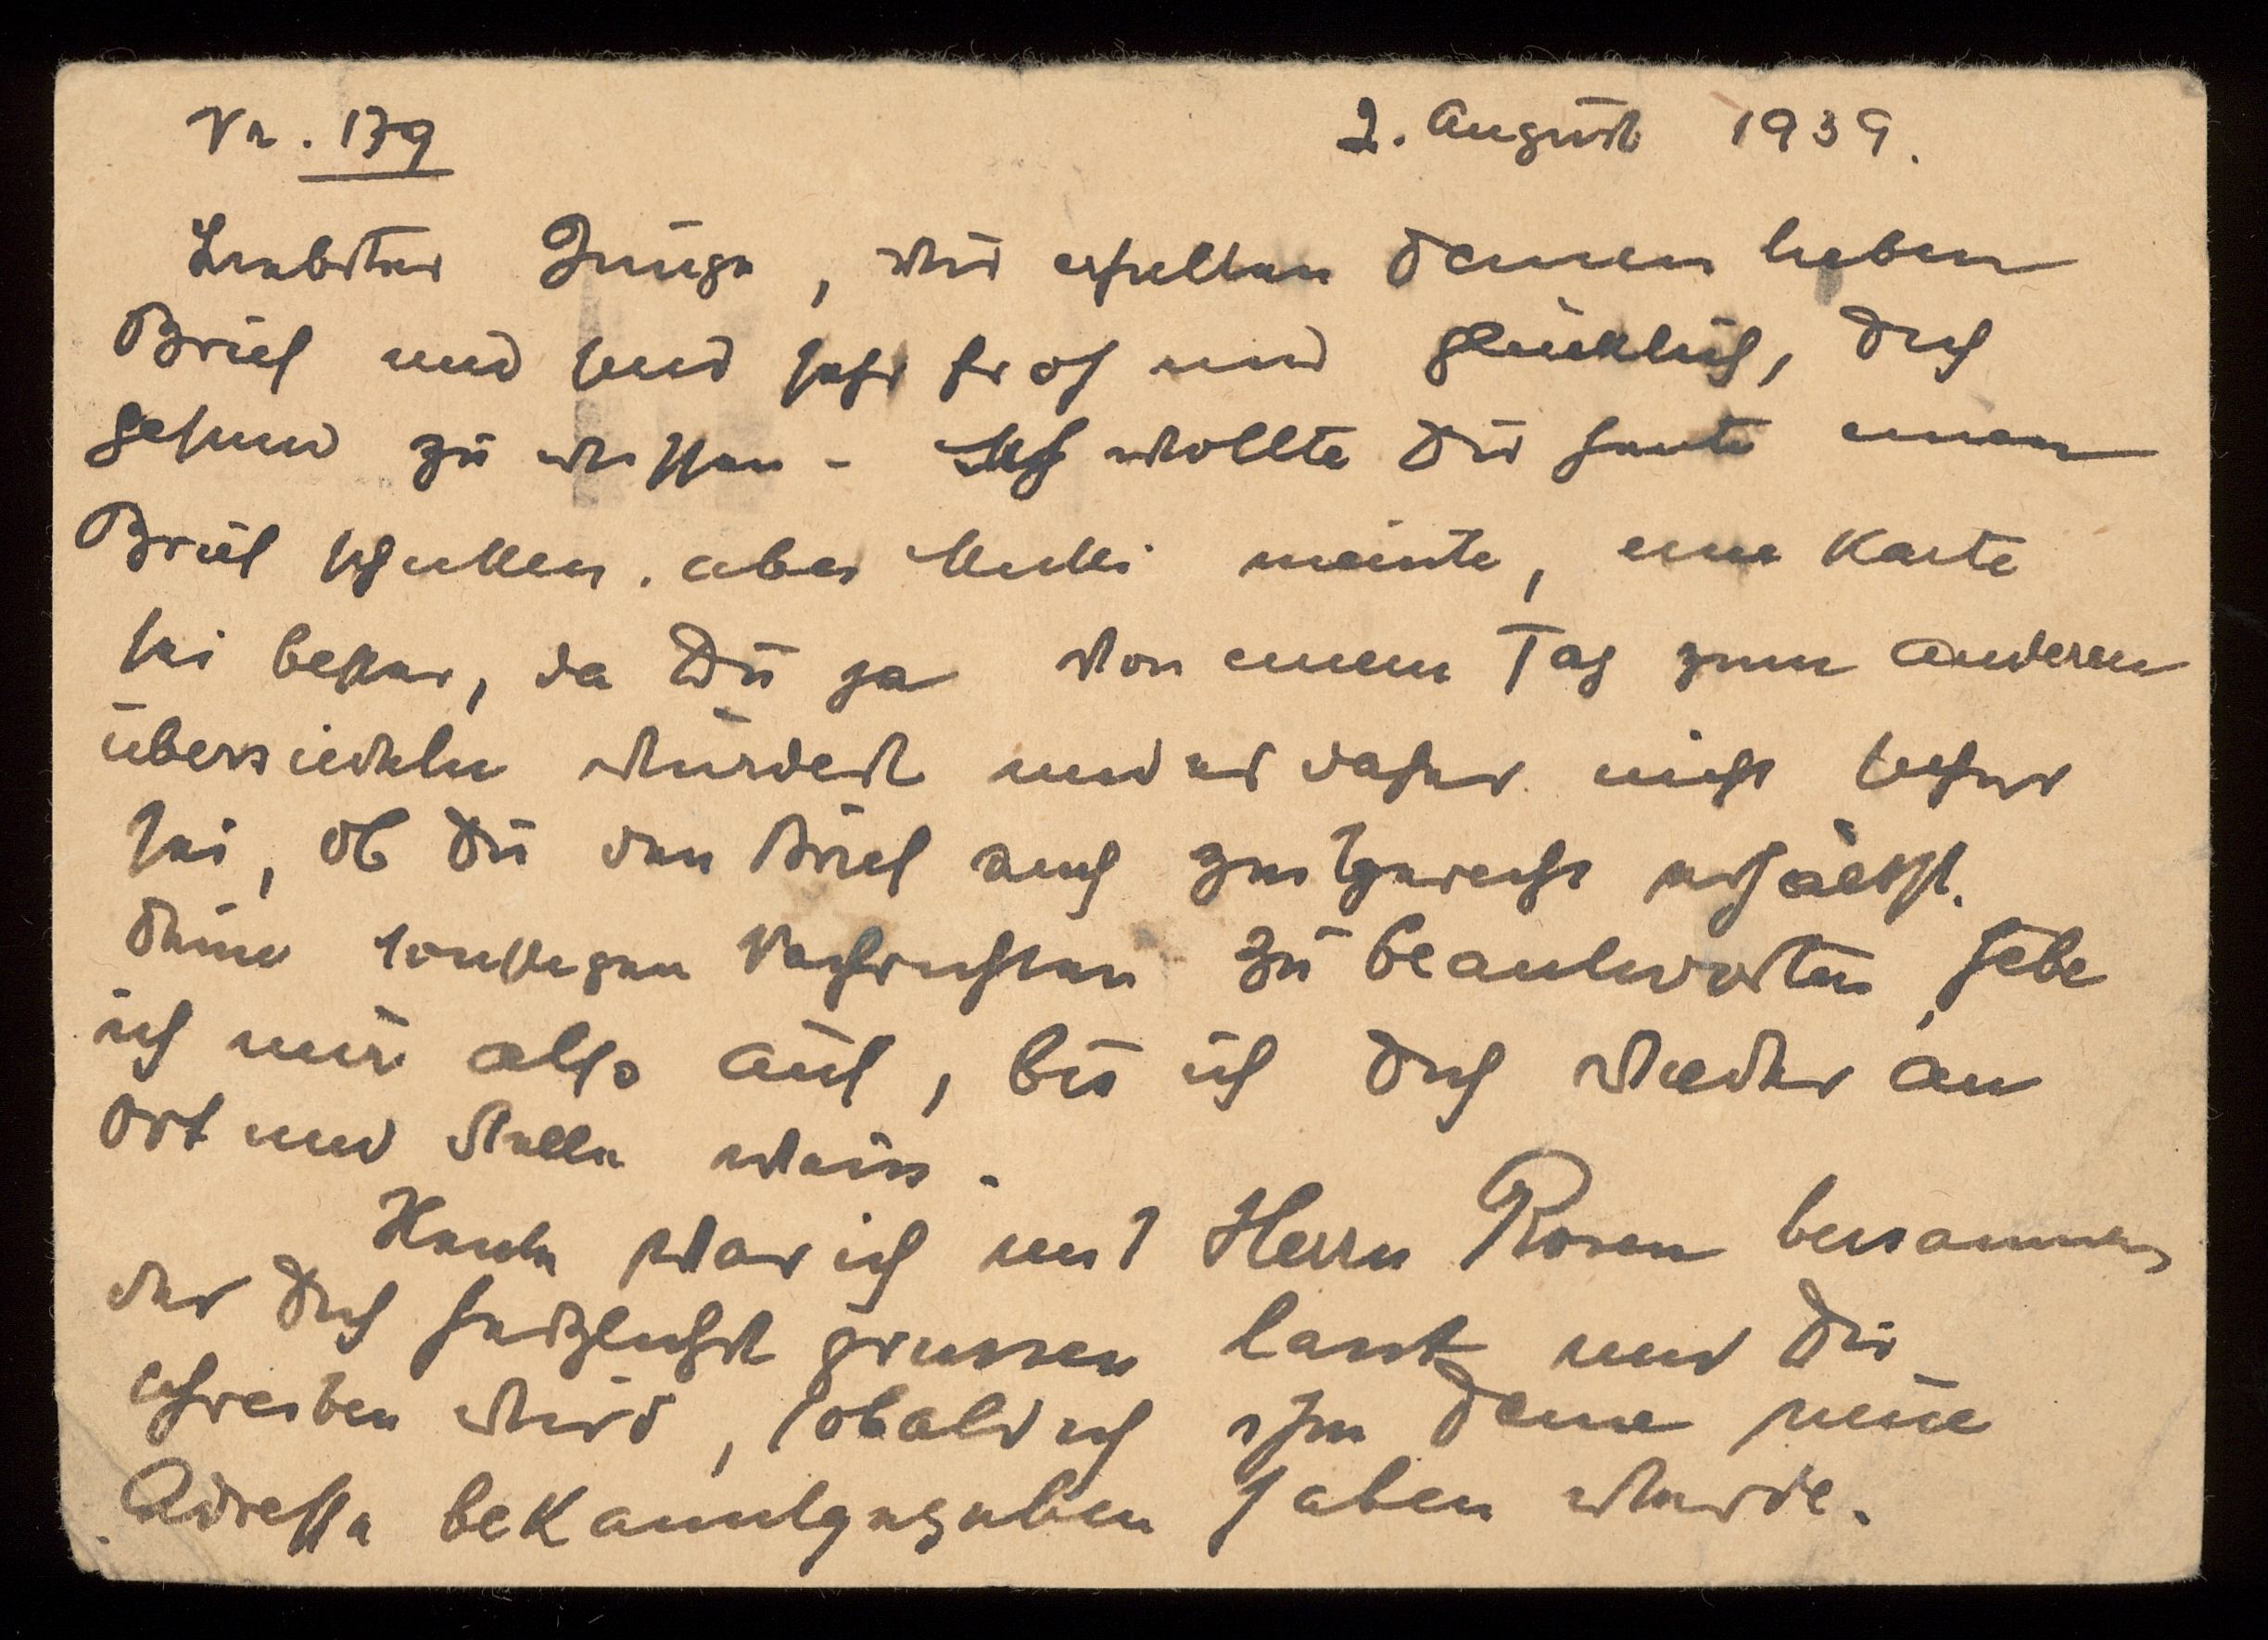 Nr. 139 2. August 1939.
Liebster Junge, wir erhielten Deinen lieben
Brief und sind sehr froh und glücklich, Dich
gesund zu wissen - Ich wollte Dir heute einen
Brief schicken, aber Mutti meinte, eine Karte
sei besser, da Du ja von einem Tag zum anderen
übersiedeln würdest und es daher nicht sicher
sei, ob Du den Brief auch zeitgerecht erhältst.
Deine sonstigen Nachrichten zu beantworten, hebe
ich mir also auf, bis ich Dich wieder an
Ort und Stelle weiss.
Heute war ich mit Herrn Rosen beisammen,
der Dich herzlichst grüssen lässt und Dir
schreiben wird, sobald ich ihm Deine neue
Adresse bekanntgegeben haben werde.